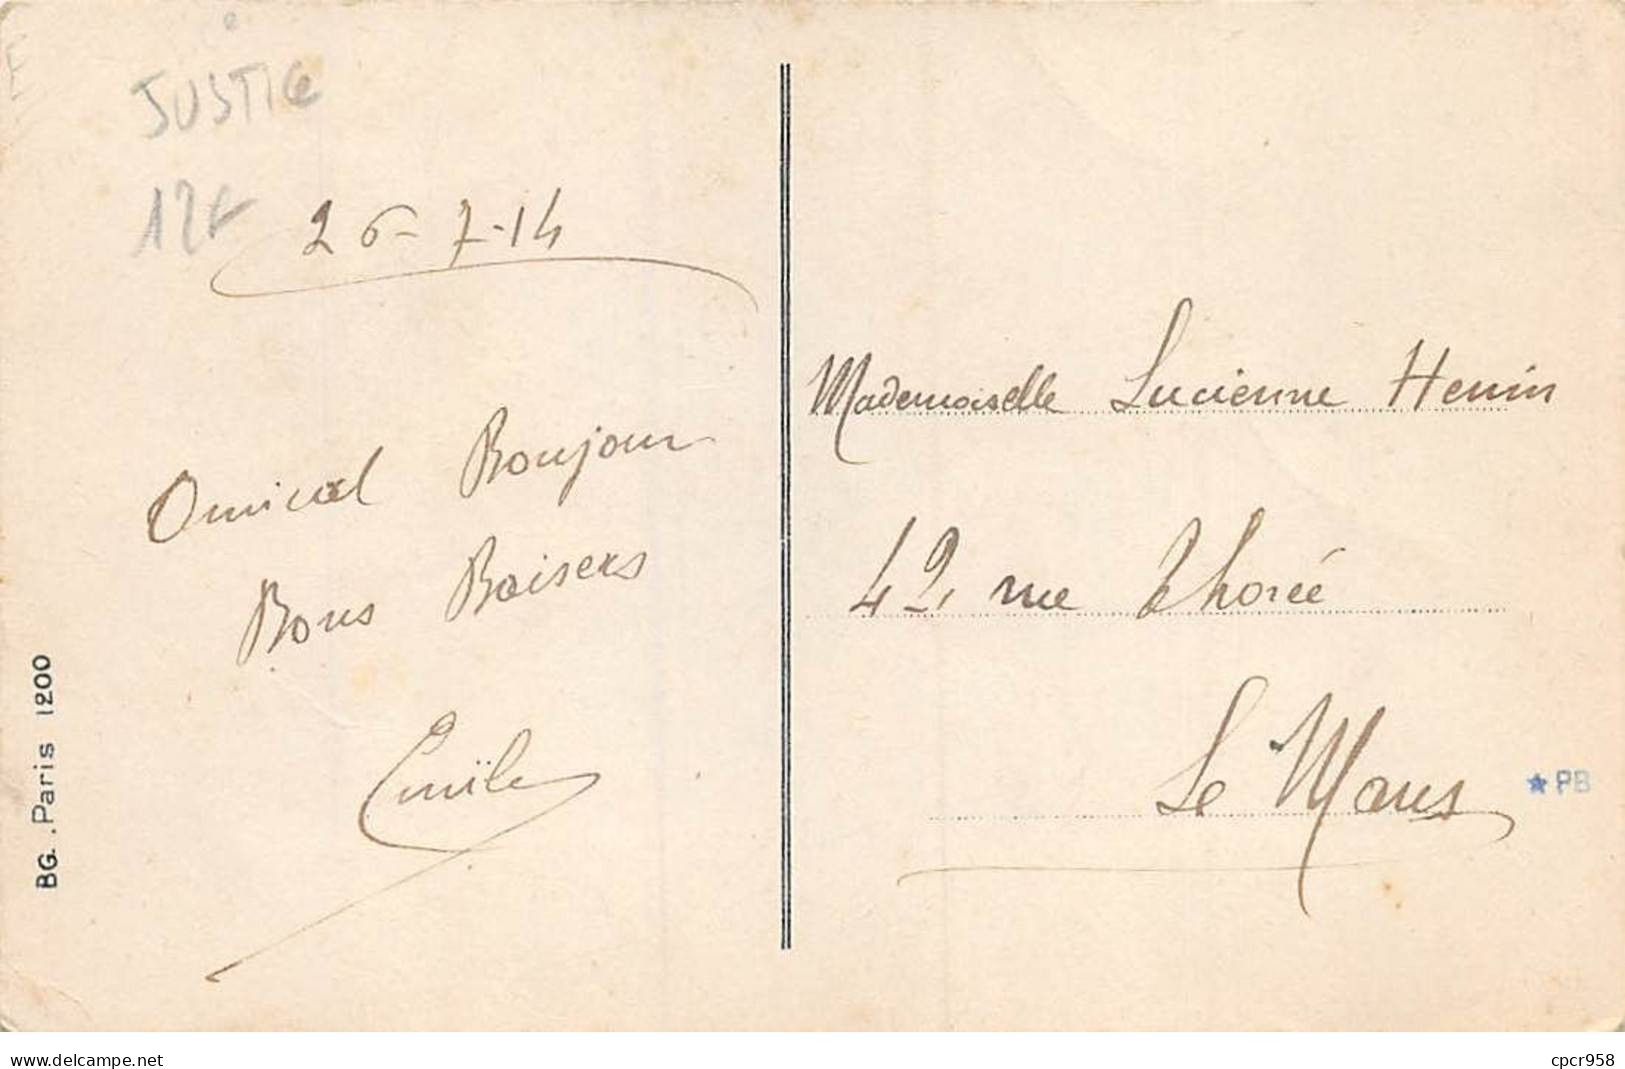 JUSTICE
12F
26-7-14
Amical Bonjour
Bons Baisers
Emile
BG. Paris 1200
Mademoiselle Lucienne Henin
42, rue Thorée
Le Mans
★ PB
www.delcampe.net
cpcr958